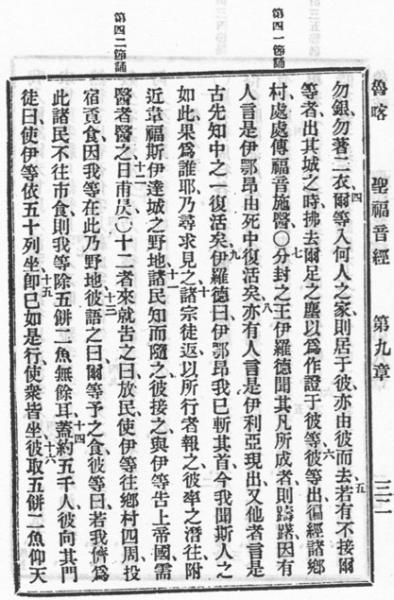 魯喀 聖福音經 第九章
第四一節誦
第四二節誦
勿銀、勿著二衣、四爾等入何人之家、則居于彼、亦由彼而去、五若有不接爾
等者、出其城之時、拂去爾足之塵、以爲作證于彼等、六彼等出、徧經諸鄉
村、處處傳福音施醫、○七分封之王伊羅德聞其凡所成者、則躊躇、因有
人言、是伊鄂昂由死中復活矣、八亦有人言、是伊利亞現出、又他者言、是
古先知中之一復活矣、九伊羅德曰、伊鄂昂我已斬其首、今我聞斯人之
如此、果爲誰耶、乃尋求見之、十諸宗徒返、以所行者報之、彼率之潛往附
近韋福斯伊達城之野地、十一諸民知而隨之、彼接之、與伊等告上帝國、需
醫者醫之、十二日甫昃、○十二者來就告之曰、放民使伊等往鄉村四周、投
宿覓食、因我等在此乃野地、十三彼語之曰、爾等予之食、彼等曰、若我儕爲
此諸民不往市食、則我等除五餅二魚無餘耳、十四蓋約五千人、彼向其門
徒曰、使伊等依五十列坐、十五卽巳如是行、使衆皆坐、十六彼取五餅二魚、仰天